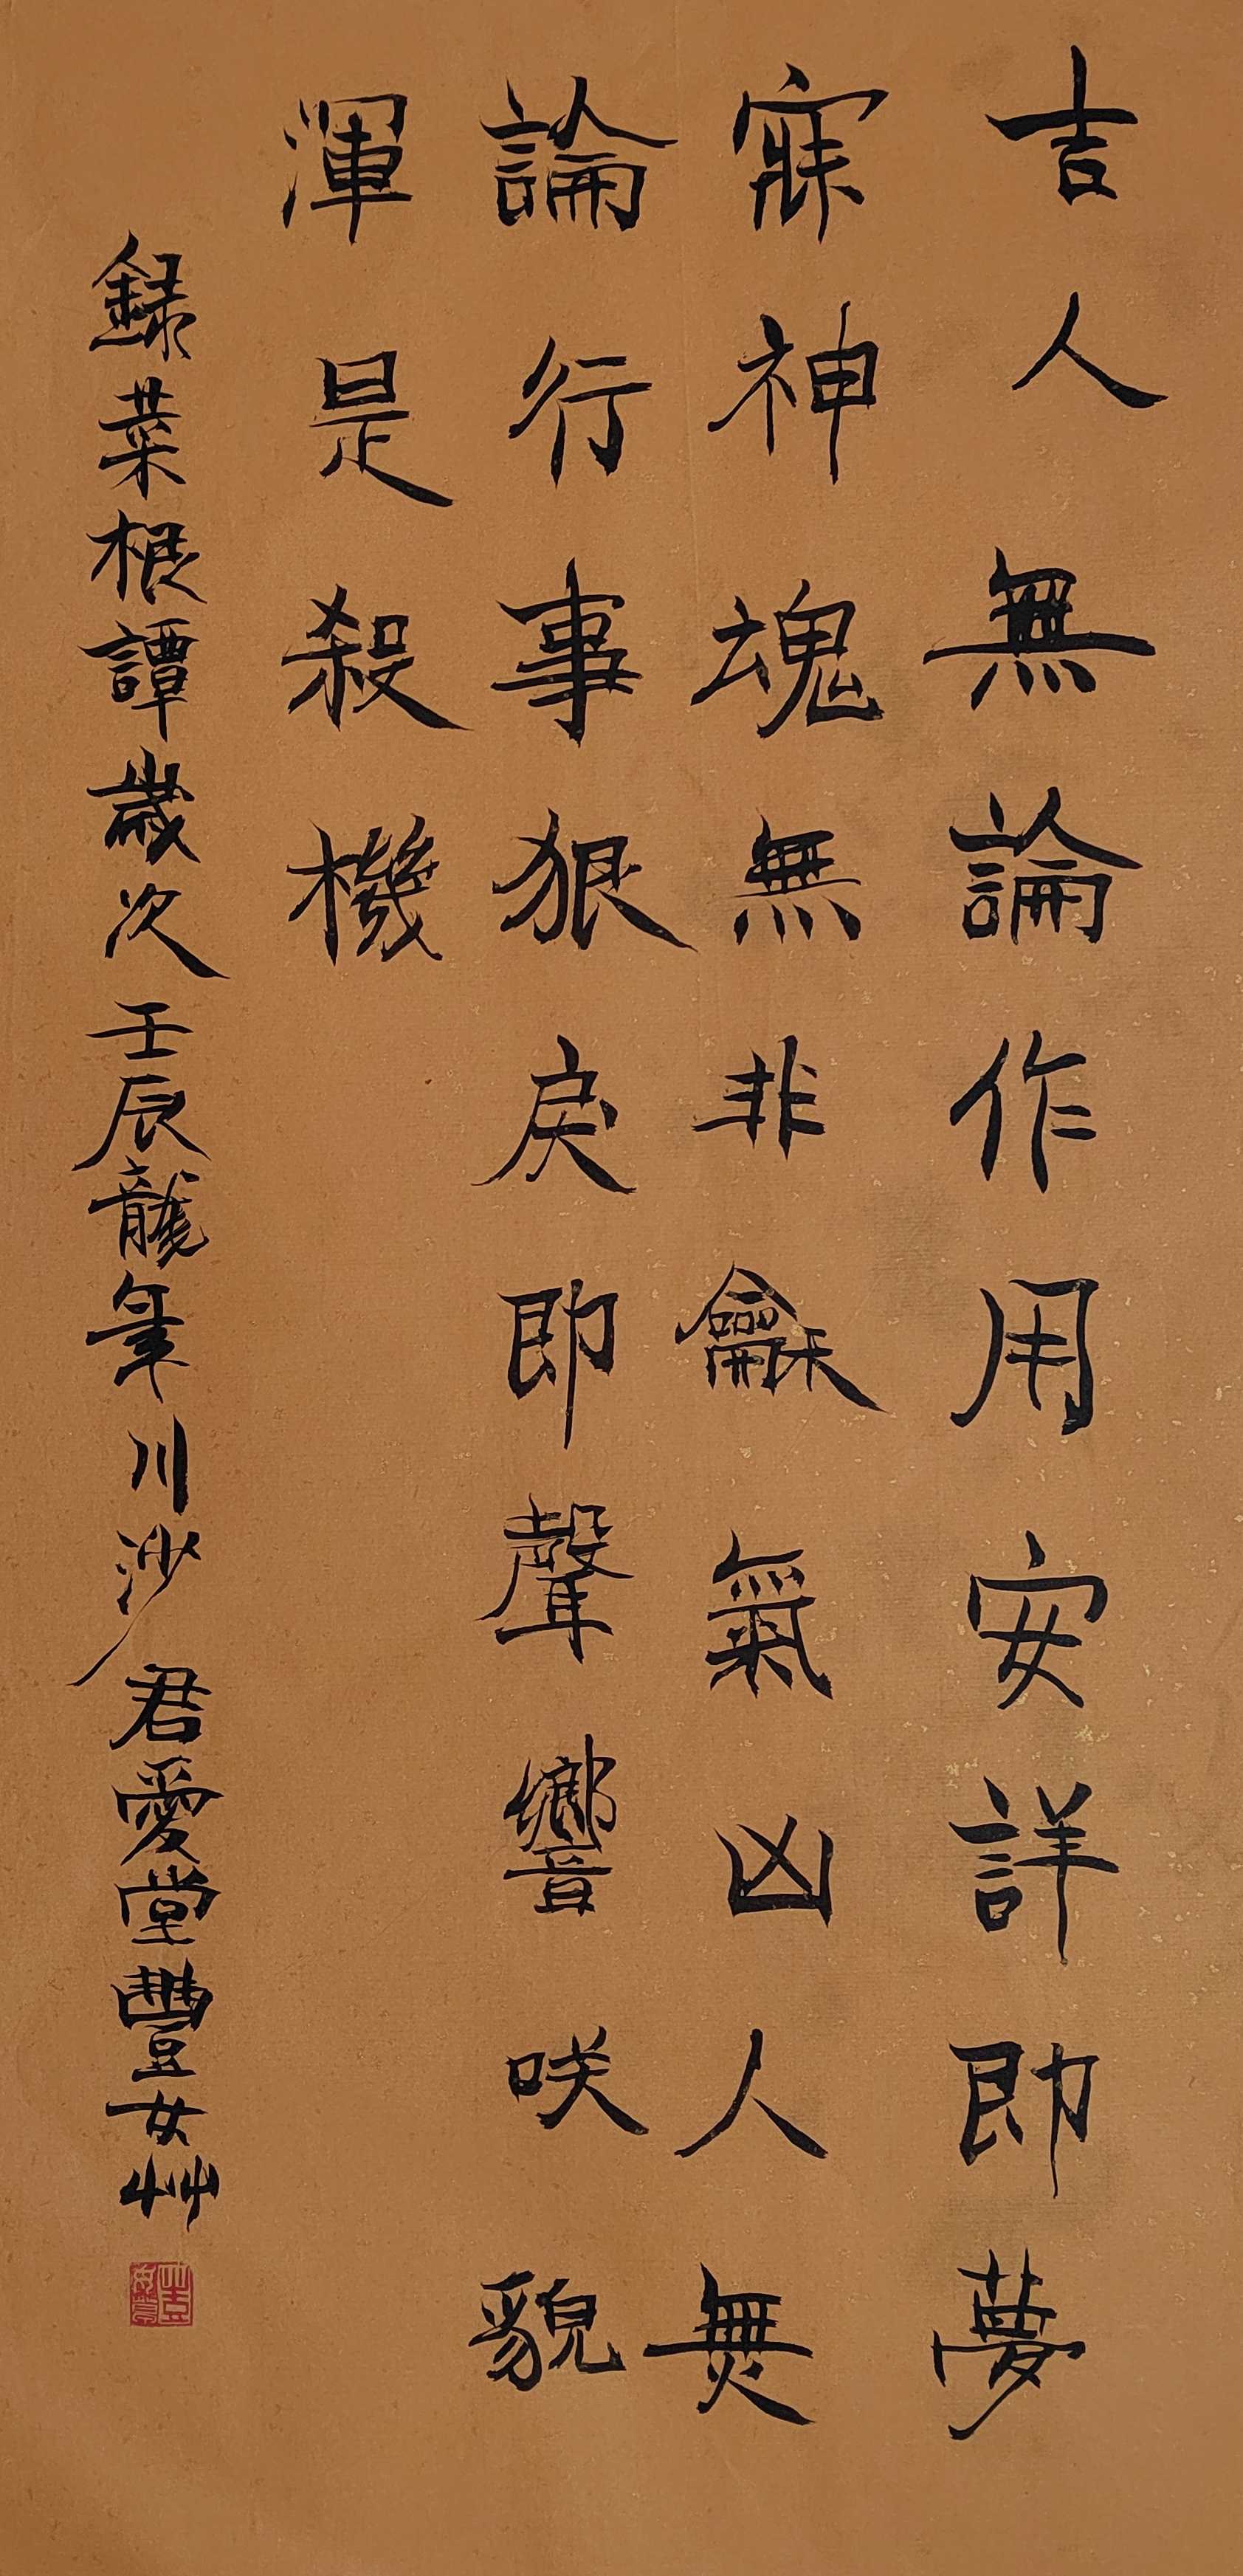 吉人無論作用安詳即夢
寐神魂無非龢氣凶人無
論行事狠戾即聲響咲貌
渾是殺機
録菜根譚歲次壬辰龍年川沙君愛堂豐女艸